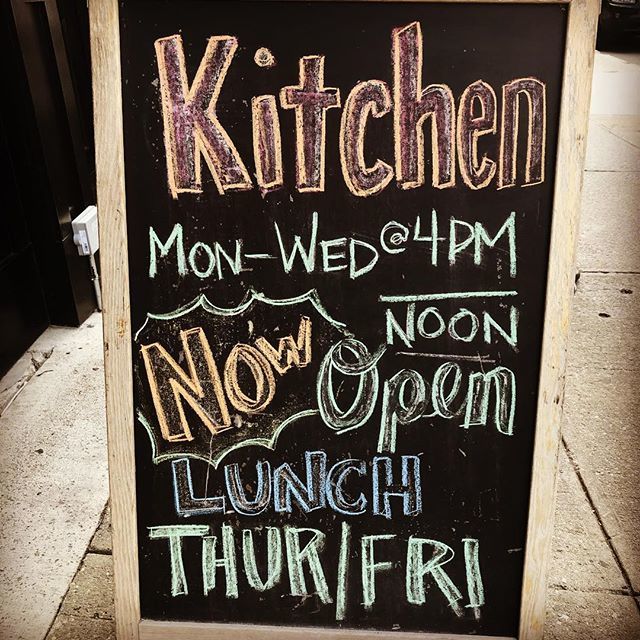 Kitchen
MON-WED @ 4PM
NOON
NOW Open
LUNCH
THUR/FRI